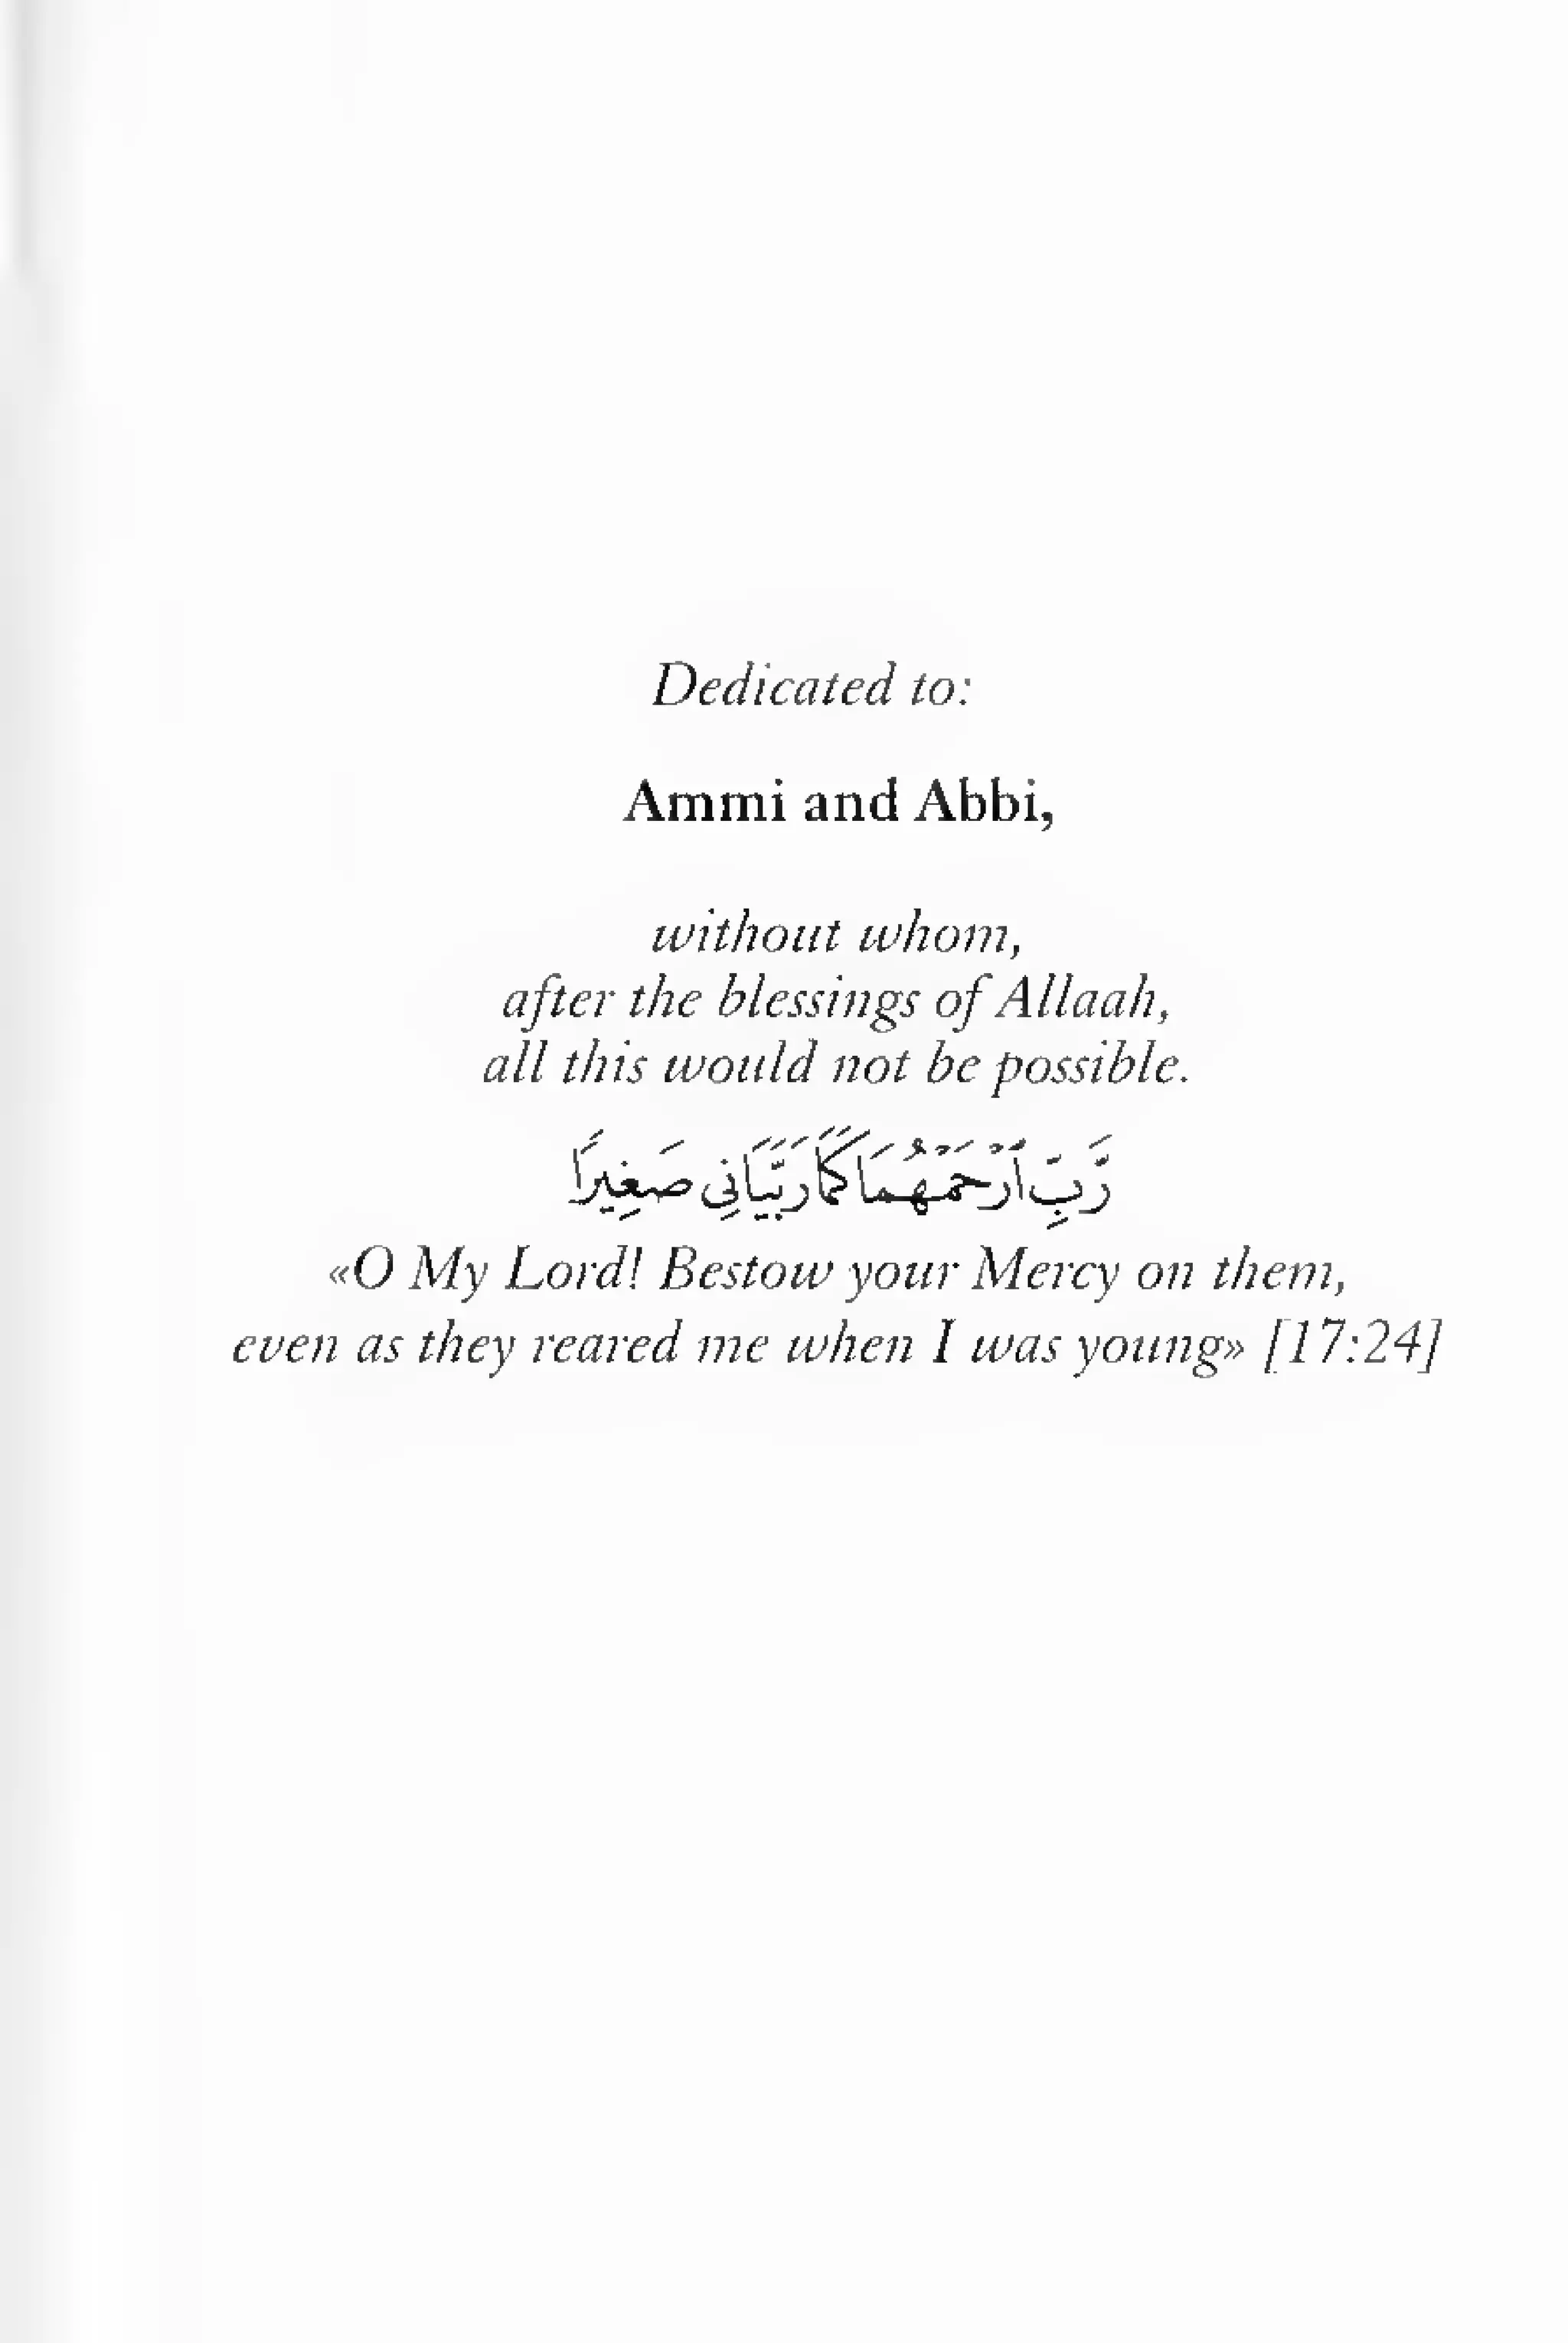 Dedicated to:
Ammi and Abbi,
without whom,
after the blessings of Allaah,
all this would not be possible.
رَّبِّ ٱرْحَمْهُمَا كَمَا رَبَّيَانِى صَغِيرًا
«O My Lord! Bestow your Mercy on them,
even as they reared me when I was young» [17:24]